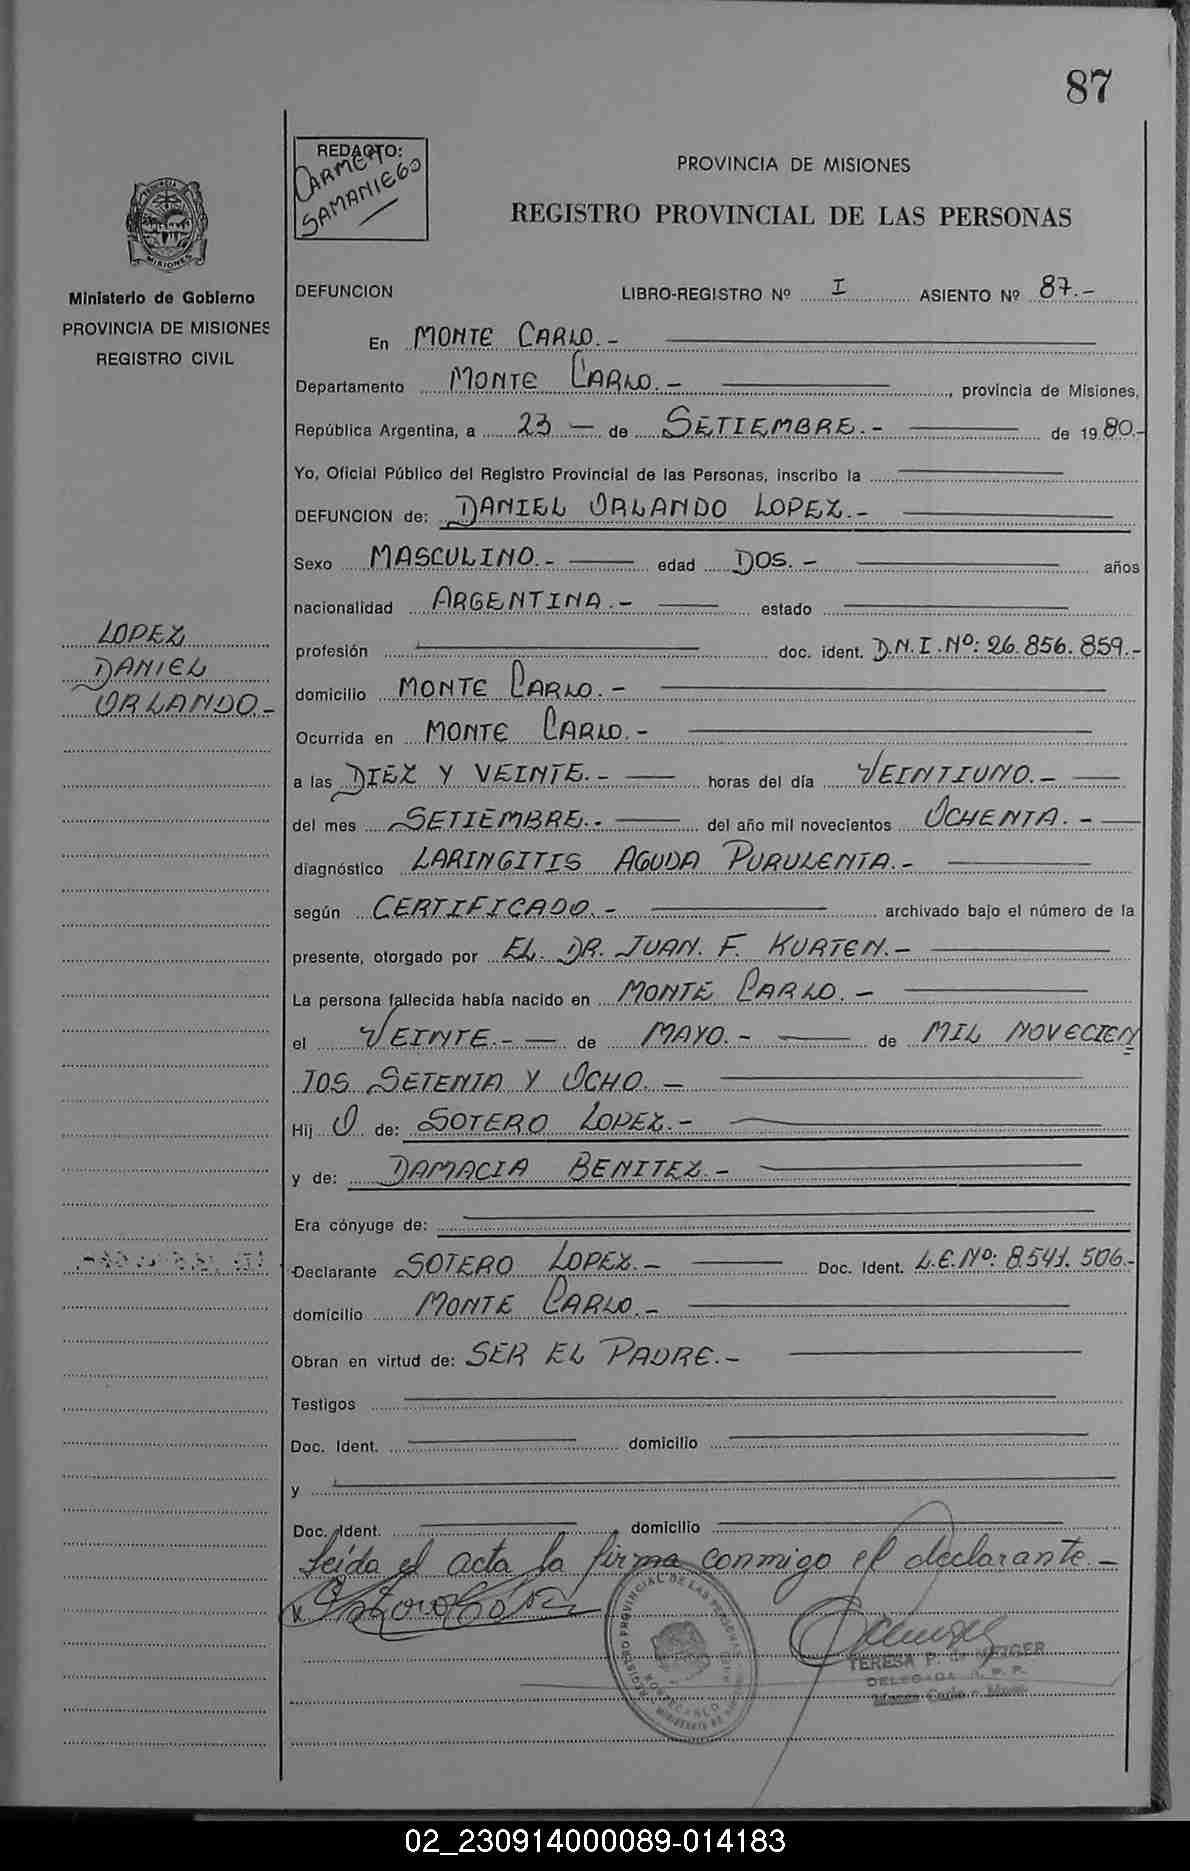 87
REDACTO:
CARMEN
SAMANIEGO
PROVINCIA DE MISIONES
REGISTRO PROVINCIAL DE LAS PERSONAS
Ministerio de Gobierno
PROVINCIA DE MISIONES
REGISTRO CIVIL
LOPEZ
DANIEL
ORLANDO.-
DEFUNCION LIBRO-REGISTRO Nº I ASIENTO Nº 87.-
En MONTE CARLO.-
Departamento MONTE CARLO.- , provincia de Misiones,
República Argentina, a 23 - de SETIEMBRE.- de 1980.-
Yo, Oficial Público del Registro Provincial de las Personas, inscribo la
DEFUNCION de: DANIEL ORLANDO LOPEZ.-
Sexo MASCULINO.- edad DOS.- años
nacionalidad ARGENTINA.- estado
profesión doc. ident. D.N.I.Nº: 26.856.859.-
domicilio MONTE CARLO.-
Ocurrida en MONTE CARLO.-
a las DIEZ Y VEINTE.- horas del día VEINTIUNO.-
del mes SETIEMBRE.- del año mil novecientos OCHENTA.-
diagnóstico LARINGITIS AGUDA PURULENTA.-
según CERTIFICADO.- archivado bajo el número de la
presente, otorgado por EL. DR. JUAN. F. KURTEN.-
La persona fallecida había nacido en MONTE CARLO.-
el VEINTE.- de MAYO.- de MIL NOVECIEN
TOS SETENTA Y OCHO.-
Hij O de: SOTERO LOPEZ.-
y de: DAMACIA BENITEZ.-
Era cónyuge de:
Declarante SOTERO LOPEZ.- Doc. Ident. L.E.Nº: 8.541.506.-
domicilio MONTE CARLO.-
Obran en virtud de: SER EL PADRE.-
Testigos
Doc. Ident. domicilio
y
Doc. Ident. domicilio
Leída el acta la firma conmigo el declarante.-
TERESA P. de METGER
DELEGADA R. P. P.
Monte Carlo - Mnes.
02_230914000089-014183